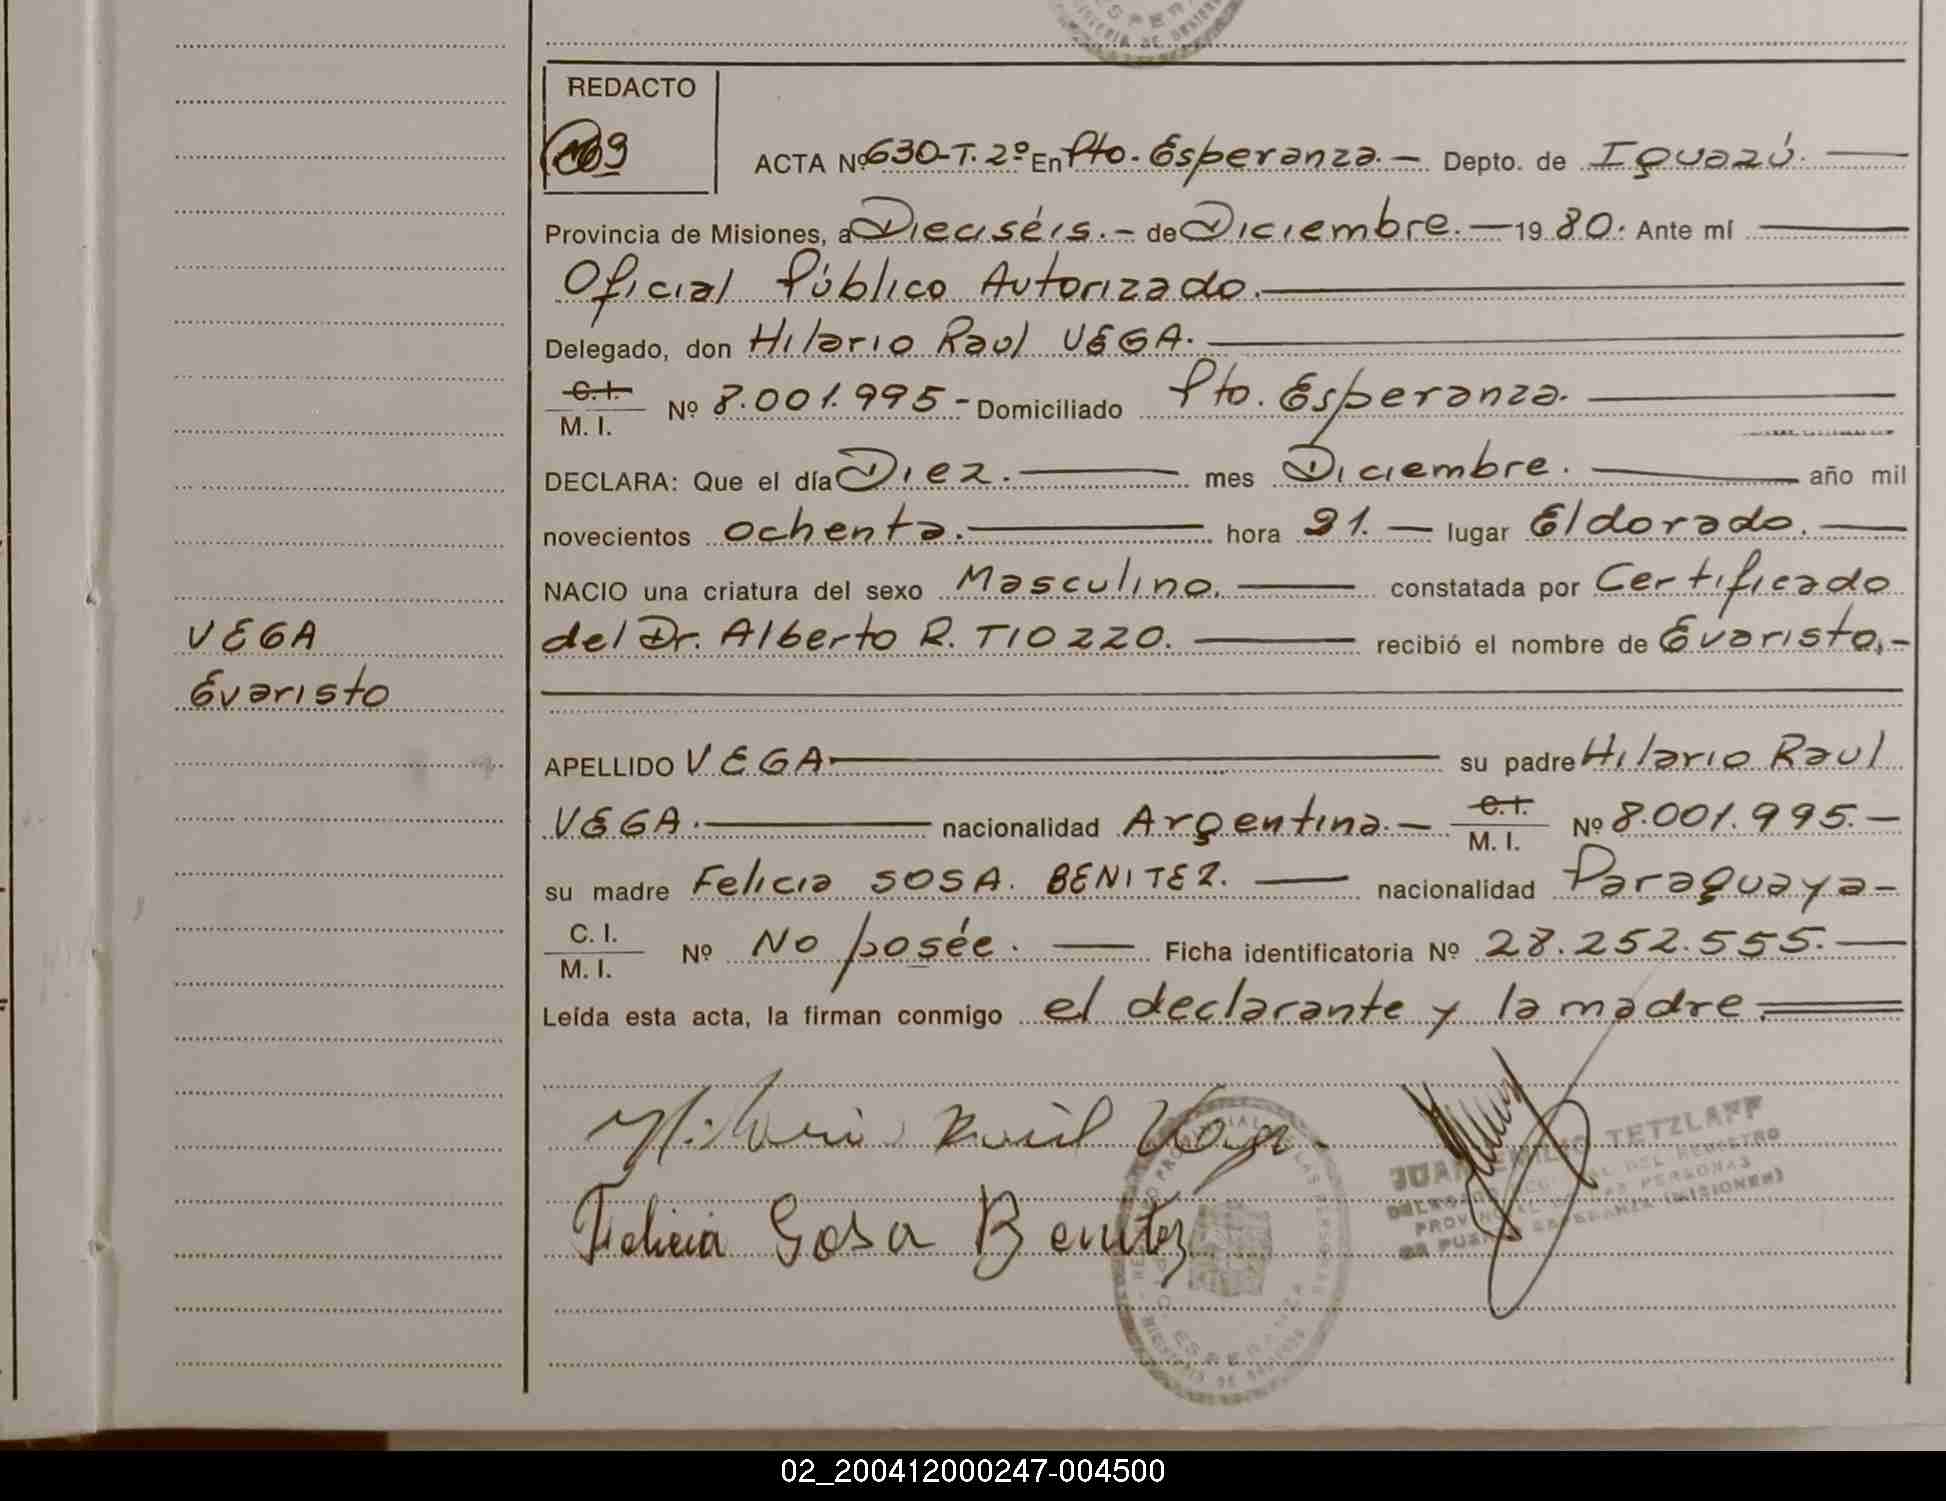 REDACTO
ACTA Nº 630-T. 2º En Pto. Esperanza.- Depto. de Iguazú.
Provincia de Misiones, a Dieciséis.- de Diciembre.- 19 80. Ante mí
Oficial Público Autorizado.
Delegado, don Hilario Raul VEGA.
C.I.
M. I. Nº 8.001.995- Domiciliado Pto. Esperanza.
DECLARA: Que el día Diez. mes Diciembre. año mil
novecientos ochenta. hora 21.- lugar Eldorado.
NACIO una criatura del sexo Masculino. constatada por Certificado
del Dr. Alberto R. TIOZZO. recibió el nombre de Evaristo.-
VEGA
Evaristo
APELLIDO VEGA su padre Hilario Raul
VEGA. nacionalidad Argentina.- C.I.
M. I. Nº 8.001.995.-
su madre Felicia SOSA. BENITEZ. nacionalidad Paraguaya-
C. I.
M. I. Nº No posée. Ficha identificatoria Nº 28.252.555.
Leída esta acta, la firman conmigo el declarante y la madre.
Hilario Raúl Vega.
Felicia Sosa Benitez
JUAN EMILIO TETZLAFF
02_200412000247-004500